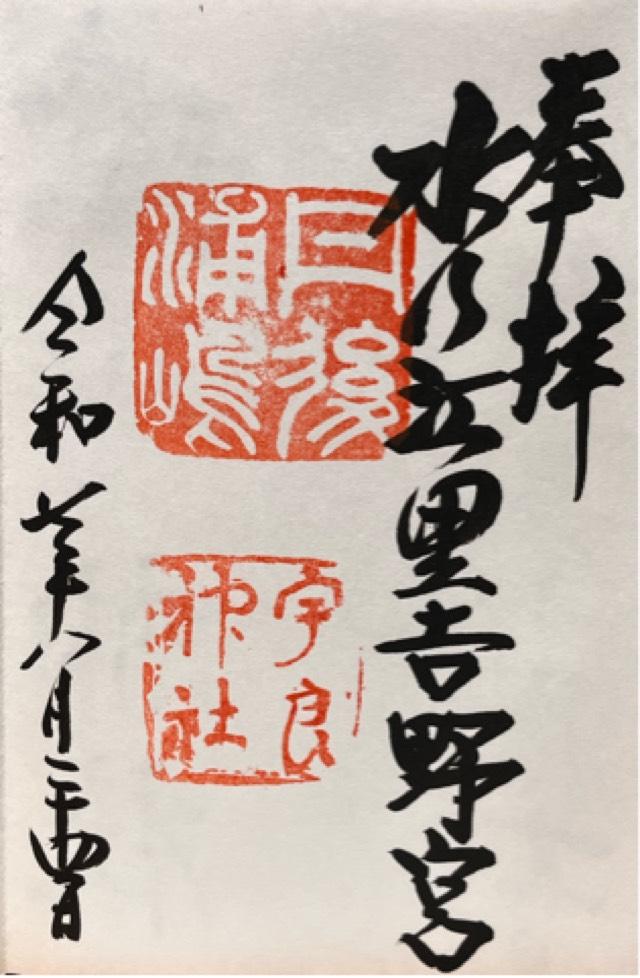 奉拝
水乃江里吉野宮
丹後
浦嶋
宇良
神社
令和七年八月二十四日